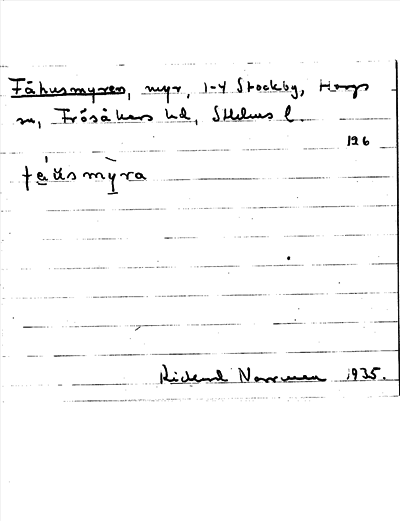 Fähusmyren, myr, 1-4 Stockby, Hargs
sn, Frösåkers hd, Sthlms l.
126
fä̀u̇smỳra
Rickard Norrman 1935.